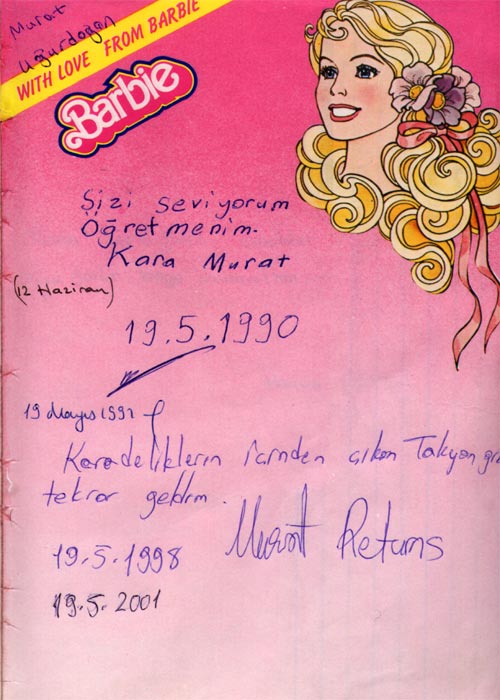 Murat
Uğurdoğan
WITH LOVE FROM BARBIE
Barbie
Sizi seviyorum
Öğretmenim.
Kara Murat
(12 Haziran)
19.5.1990
19 Mayıs 1991
Karadeliklerin içinden çıkan Takyon gi
tekrar geldim.
Murat Returns
19.5.1998
19.5.2001